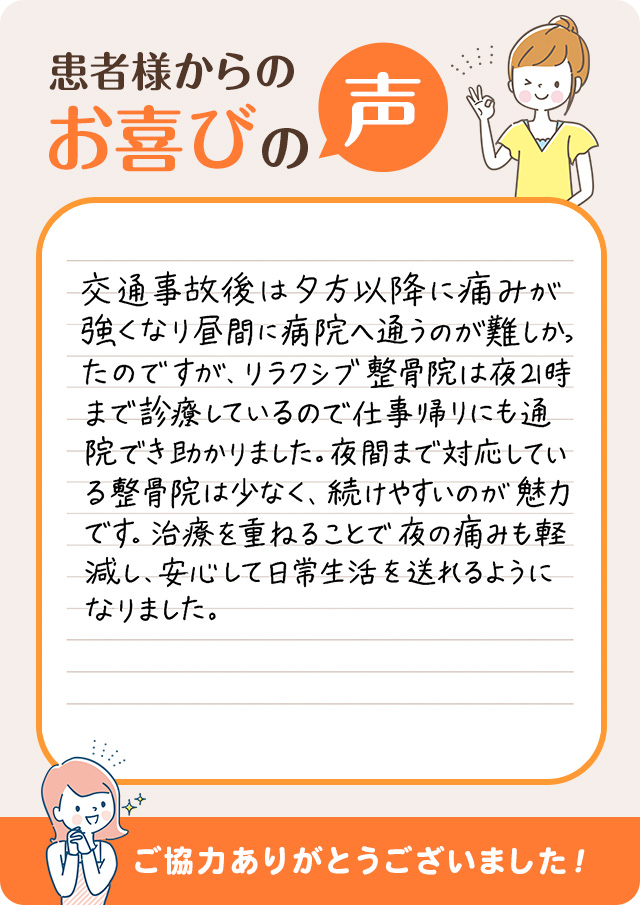 患者様からの
お喜びの声
交通事故後は夕方以降に痛みが
強くなり昼間に病院へ通うのが難しかっ
たのですが、リラクシブ整骨院は夜21時
まで診療しているので仕事帰りにも通
院でき助かりました。夜間まで対応してい
る整骨院は少なく、続けやすいのが魅力
です。治療を重ねることで夜の痛みも軽
減し、安心して日常生活を送れるように
なりました。
ご協力ありがとうございました!